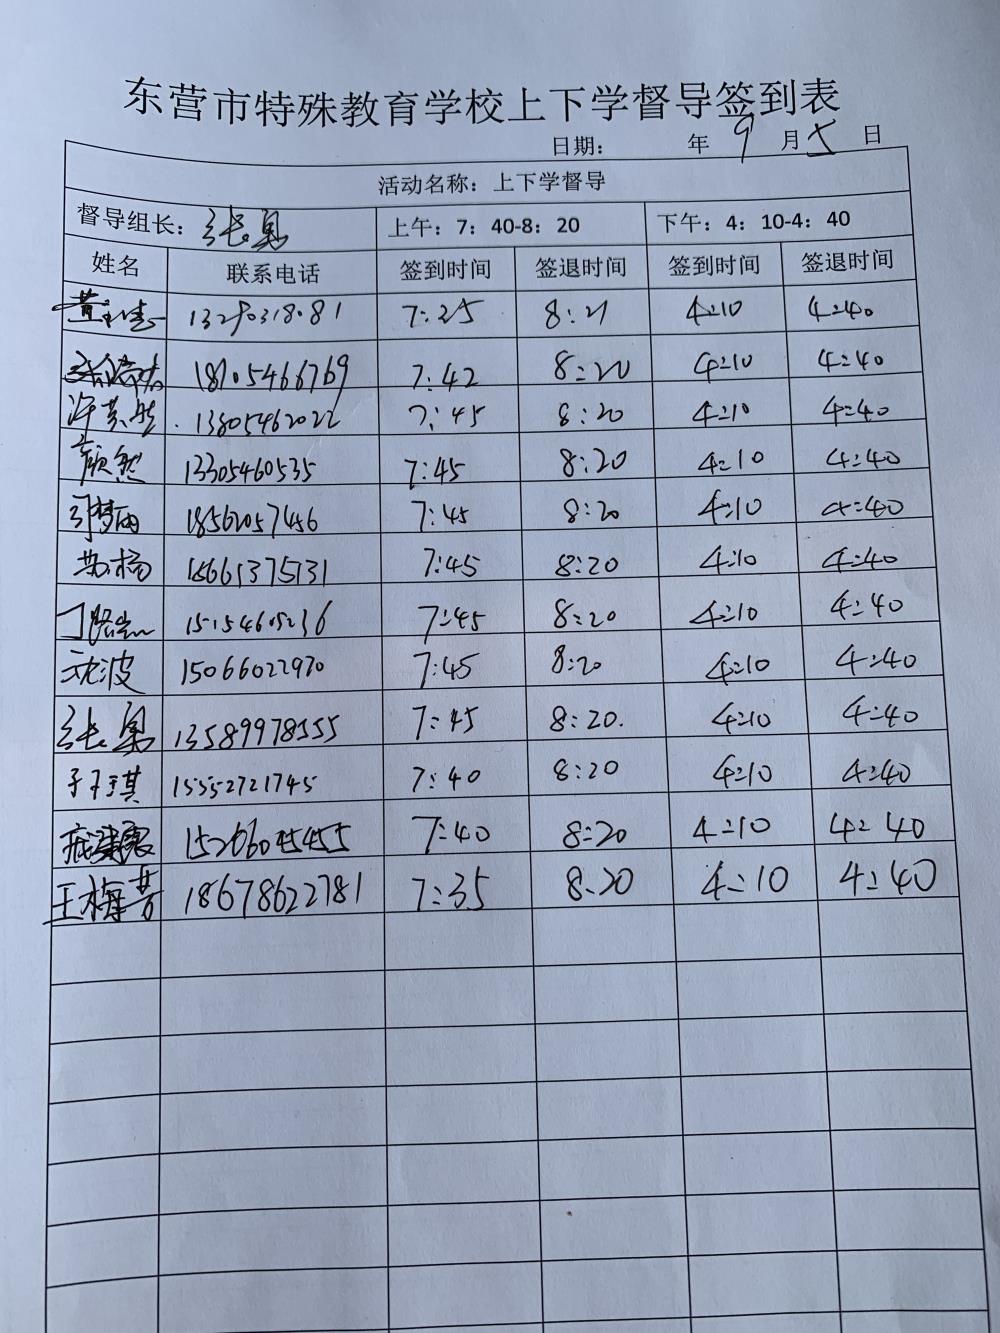 东营市特殊教育学校上下学督导签到表
日期： 年 9 月 5 日
活动名称：上下学督导
督导组长：张勇 上午：7：40-8：20 下午：4：10-4：40
姓名 联系电话 签到时间 签退时间 签到时间 签退时间
7:25 8:21 4:10 4:40
18705466769 7:42 8:20 4:10 4:40
13805462022 7:45 8:20 4:10 4:40
颜然 13305460535 7:45 8:20 4:10 4:40
18562057456 7:45 8:20 4:10 4:40
苏杨 18661375131 7:45 8:20 4:10 4:40
15154605236 7:45 8:20 4:10 4:40
15066022970 7:45 8:20 4:10 4:40
13589978555 7:45 8:20. 4:10 4:40
15552721745 7:40 8:20 4:10 4:40
15266045455 7:40 8:20 4:10 4:40
王梅芳 18678622781 7:35 8:20 4:10 4:40